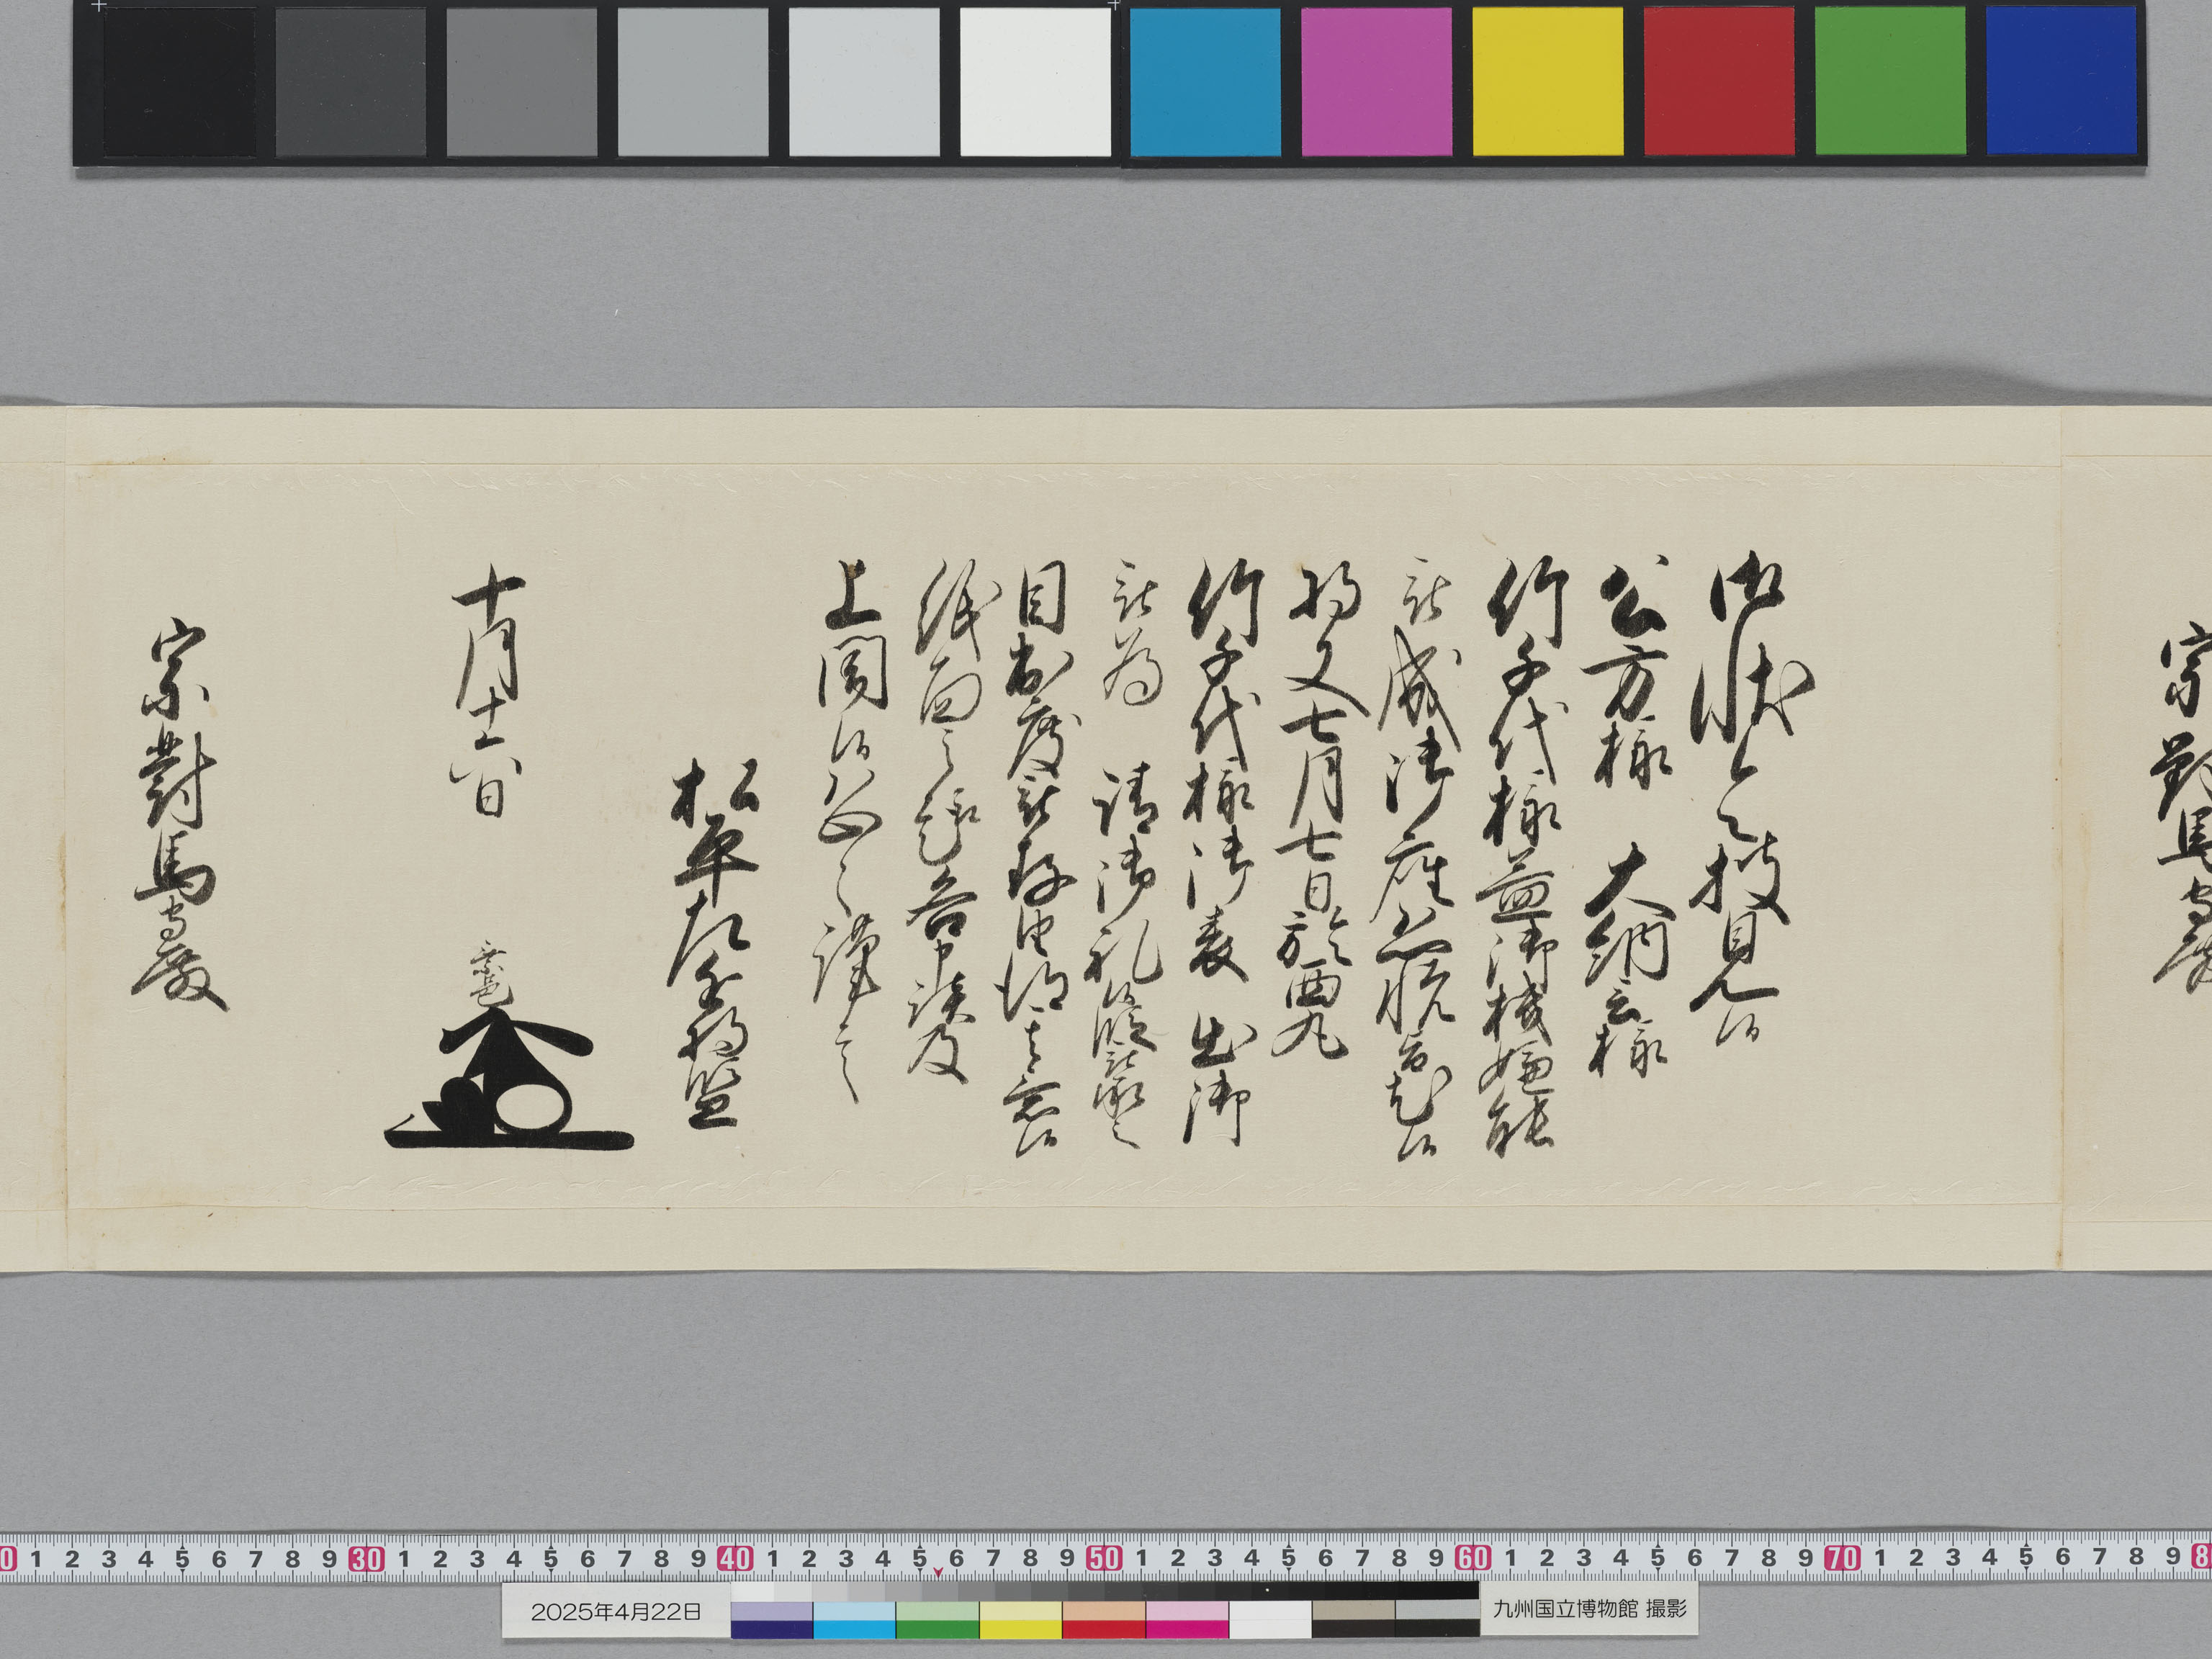 宗對馬守殿
御状令披見候
公方様　大納言様
竹千代様益御機嫌能
被成御座恐悦旨尤候
将又七月七日於西丸
竹千代様御表　出御
被為　請御礼候段被承之
目出度被存由得其意候
紙面之趣各申談及
上聞候恐々謹言
松平左近将監
十月十六日　乗邑
宗對馬守殿
0 1 2 3 4 5 6 7 8 9 30 1 2 3 4 5 6 7 8 9 40 1 2 3 4 5 6 7 8 9 50 1 2 3 4 5 6 7 8 9 60 1 2 3 4 5 6 7 8 9 70 1 2 3 4 5 6 7 8 9 8
2025年4月22日
九州国立博物館 撮影